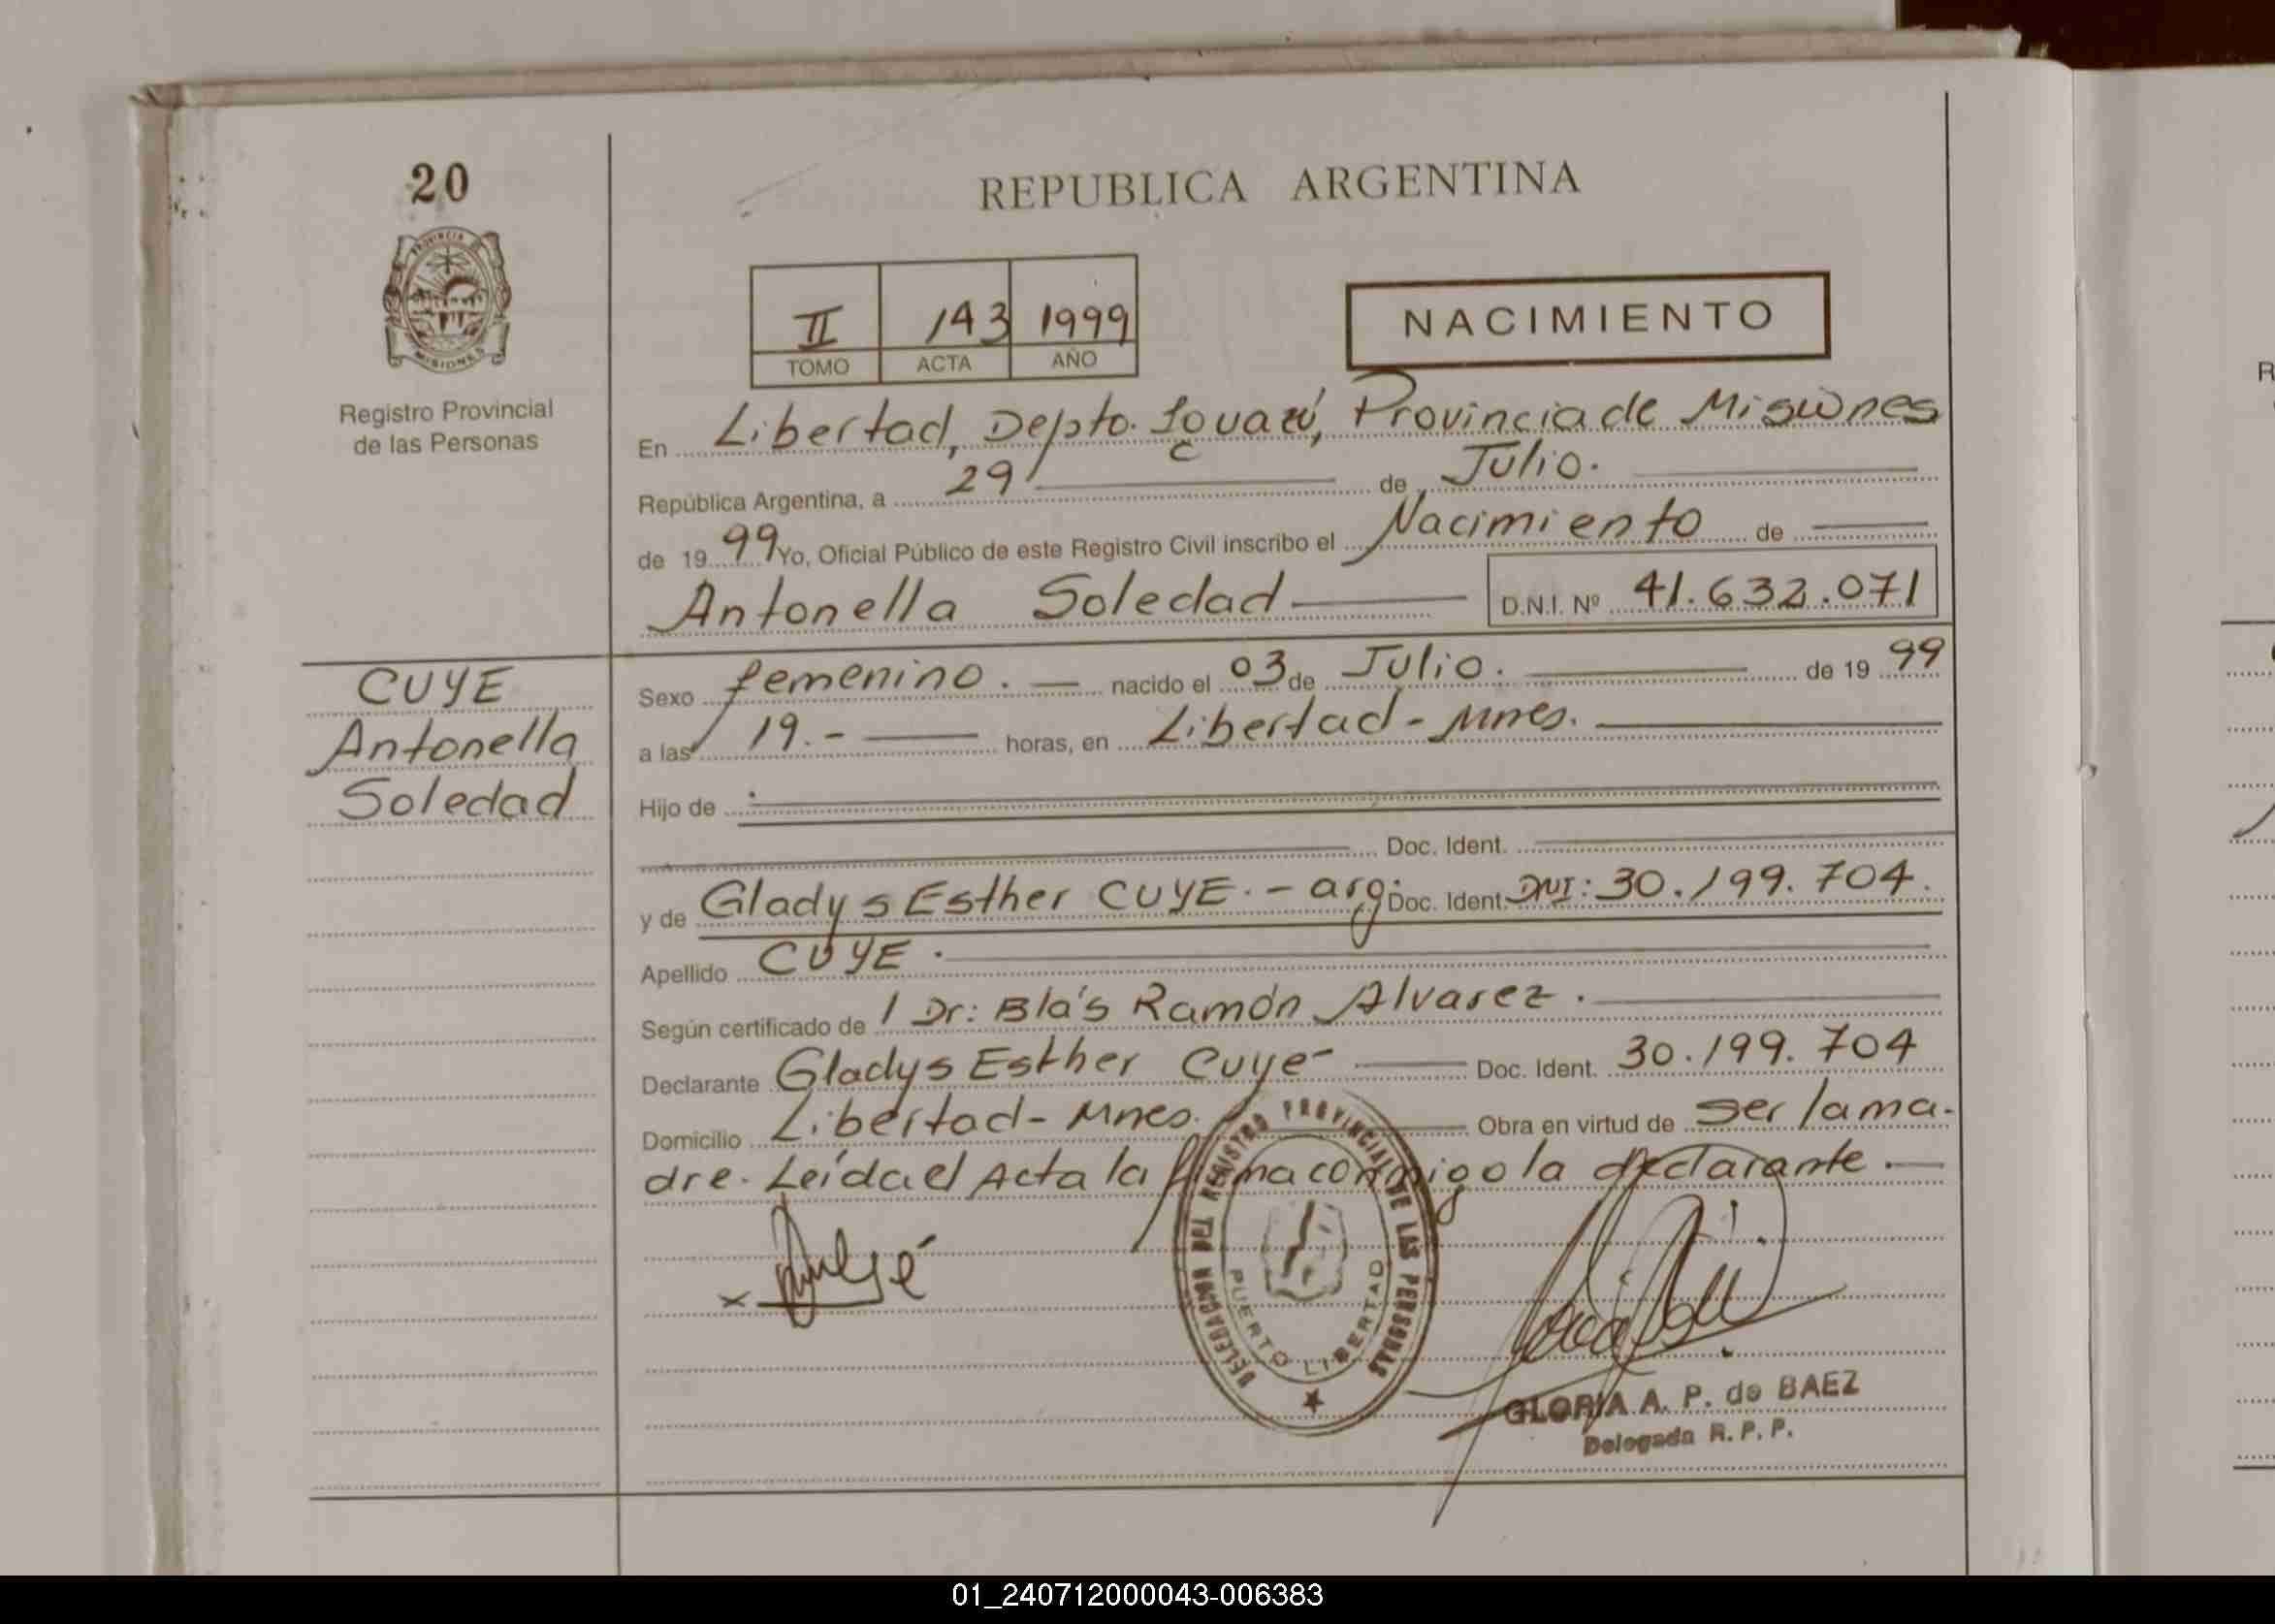 20
PROVINCIA DE
MISIONES
Registro Provincial
de las Personas
REPUBLICA ARGENTINA
II 143 1999
TOMO ACTA AÑO
NACIMIENTO
En Libertad, Depto. Iguazú, Provincia de Misiones
República Argentina, a 29 de Julio.
de 19 99 Yo, Oficial Público de este Registro Civil inscribo el Nacimiento de
Antonella Soledad D.N.I. Nº 41.632.071
CUYE
Antonella
Soledad
Sexo femenino. nacido el 03 de Julio. de 19 99
a las 19.- horas, en Libertad - Mnes.
Hijo de
Doc. Ident.
y de Gladys Esther CUYE.- arg. Doc. Ident. DNI: 30.199.704.
Apellido CUYE.
Según certificado de l Dr: Blás Ramón Alvarez.
Declarante Gladys Esther Cuye Doc. Ident. 30.199.704
Domicilio Libertad - Mnes. Obra en virtud de ser la ma-
dre. Leída el Acta la firma conmigo la declarante.
x
DELEGACION DEL REGISTRO PROVINCIAL DE LAS PERSONAS
PUERTO LIBERTAD
GLORIA A. P. de BAEZ
Delegada R. P. P.
01_240712000043-006383